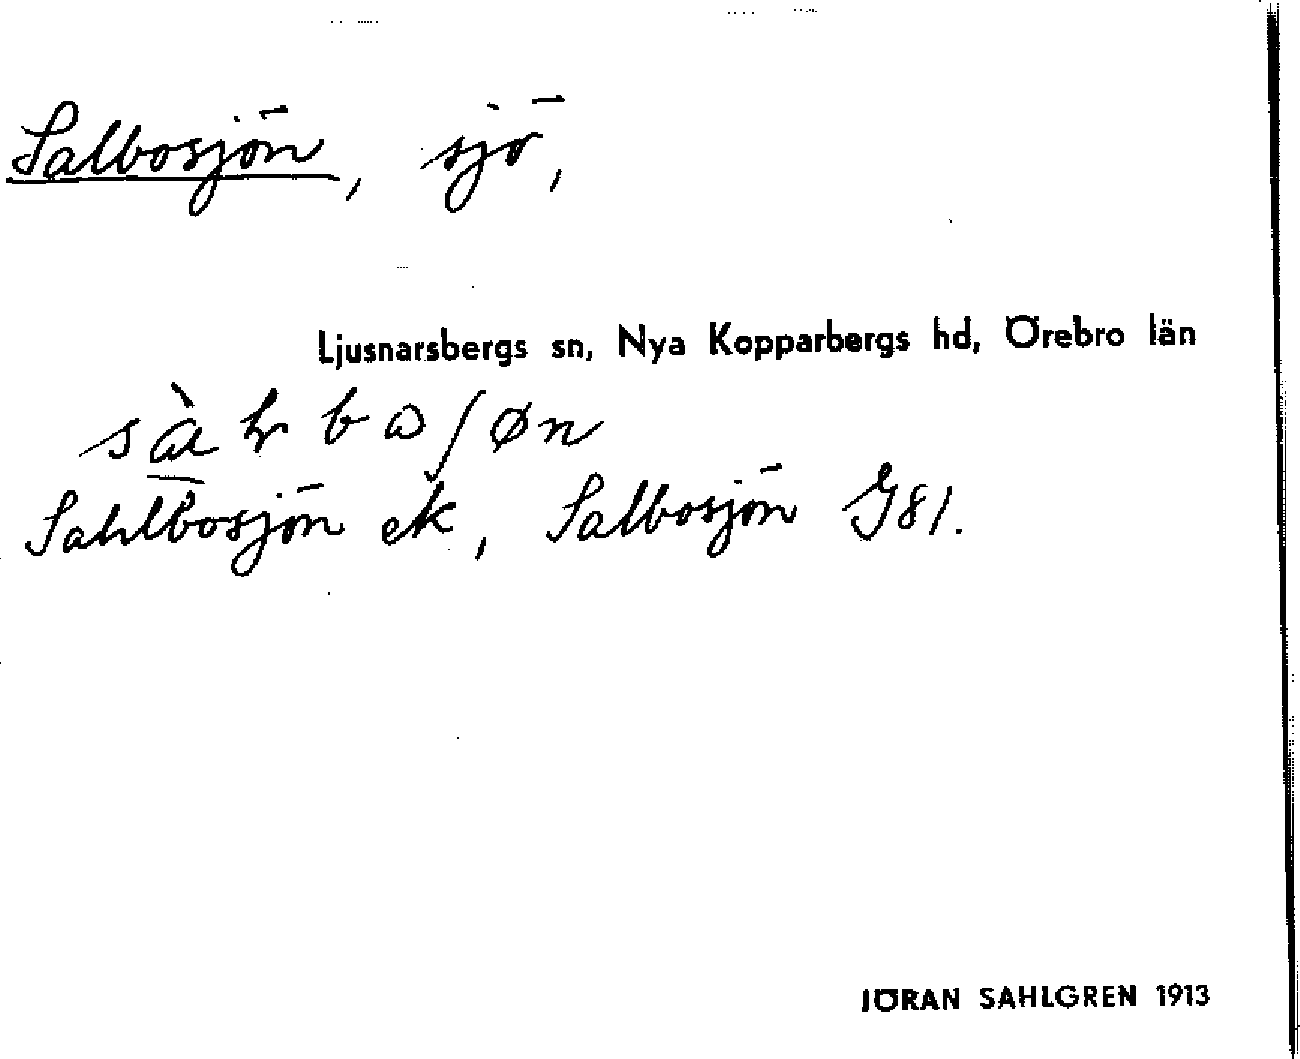 Salbosjön, sjö,
Ljusnarsbergs sn, Nya Kopparbergs hd, Örebro län
Sahlbosjön ek, Salbosjön G81.
JÖRAN SAHLGREN 1913